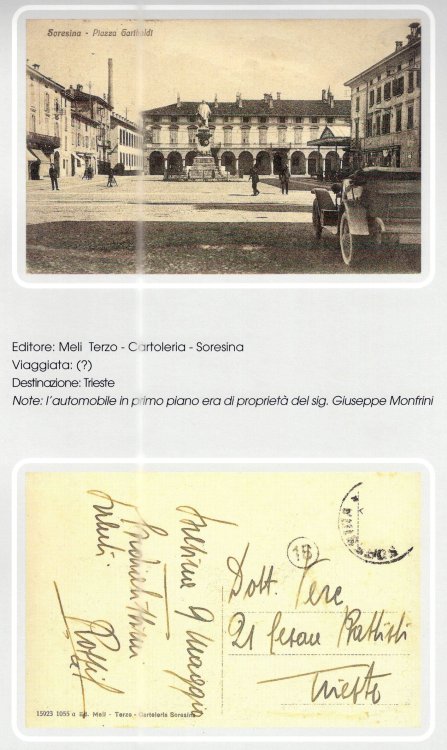 Soresina - Piazza Garibaldi
Editore: Meli Terzo - Cartoleria - Soresina
Viaggiata: (?)
Destinazione: Trieste
Note: l'automobile in primo piano era di proprietà del sig. Giuseppe Monfrini
9 Maggio
Saluti
18
Dott.
21 Cesare Battisti
Trieste
15023 1055 a Ed. Meli - Terzo - Cartoleria Soresina